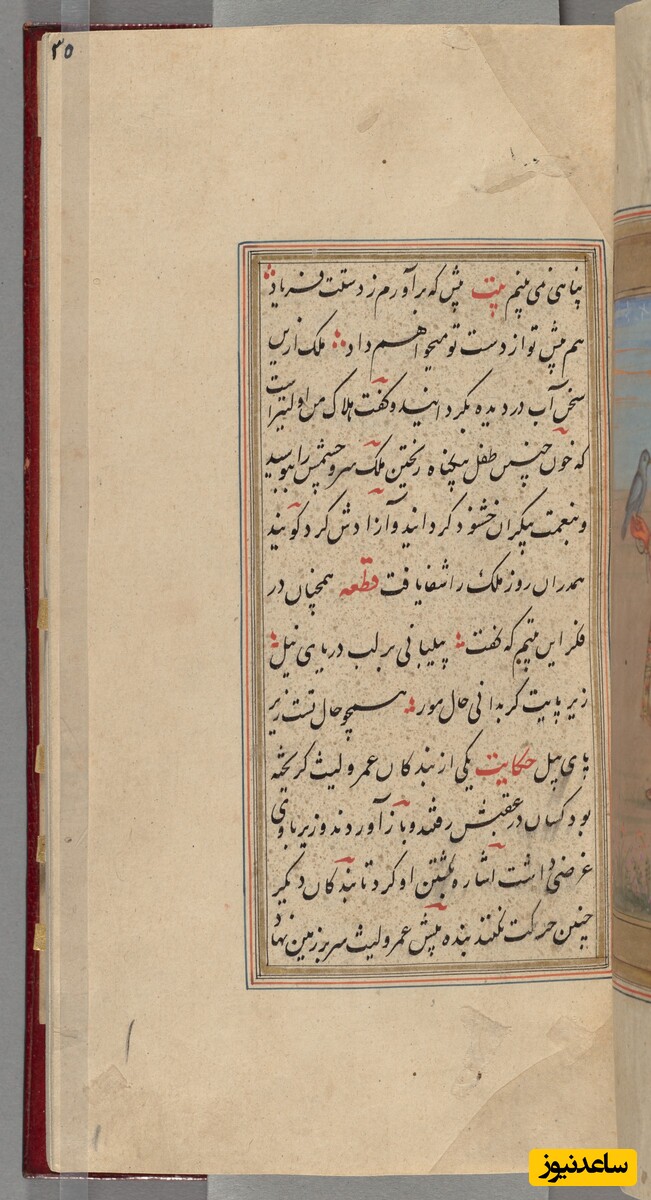 ۳۵
پناهی نمی بینم بیت پیش که برآورم ز دستت فریاد
هم پیش تو از دست تو میخواهم داد ملک ازین
سخن آب در دیده بگردانید و گفت هلاک من اولیتر است
که خون چنین طفل بیگناه ریختن ملک سر و چشمش را ببوسید
و بنعمت بیکران خشنود گردانید و آزادش کرد گویند
همدران روز ملک را شفا یافت قطعه همچنان در
فکر این بیتم که گفت پیلبانی بر لب دریای نیل
زیر پایت گر بدانی حال مور همچو حال تست زیر
پای پیل حکایت یکی از بندگان عمرو لیث گریخته
بود کسان در عقبش رفتند و باز آوردند وزیر با وی
غرضی داشت اشاره بکشتن او کرد تا بندگان دیگر
چنین حرکت نکنند بنده پیش عمرو لیث سر بر زمین نهاد
ساعدنیوز